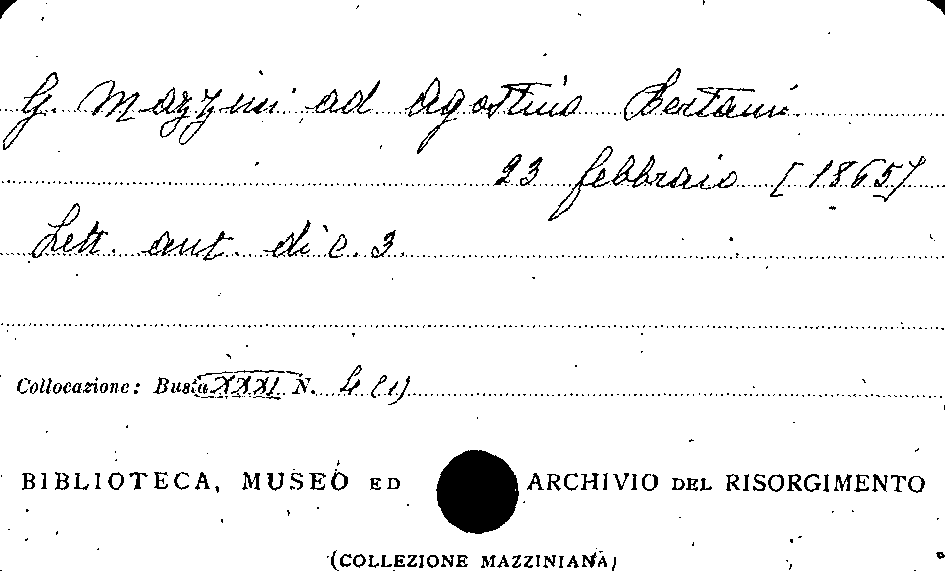 G. Mazzini ad Agostino Bertani
23 febbraio [1865]
Lett. aut. di c. 3.
Collocazione: Busta XXXI N. 4 (1)
BIBLIOTECA, MUSEO ED ARCHIVIO DEL RISORGIMENTO
(COLLEZIONE MAZZINIANA)